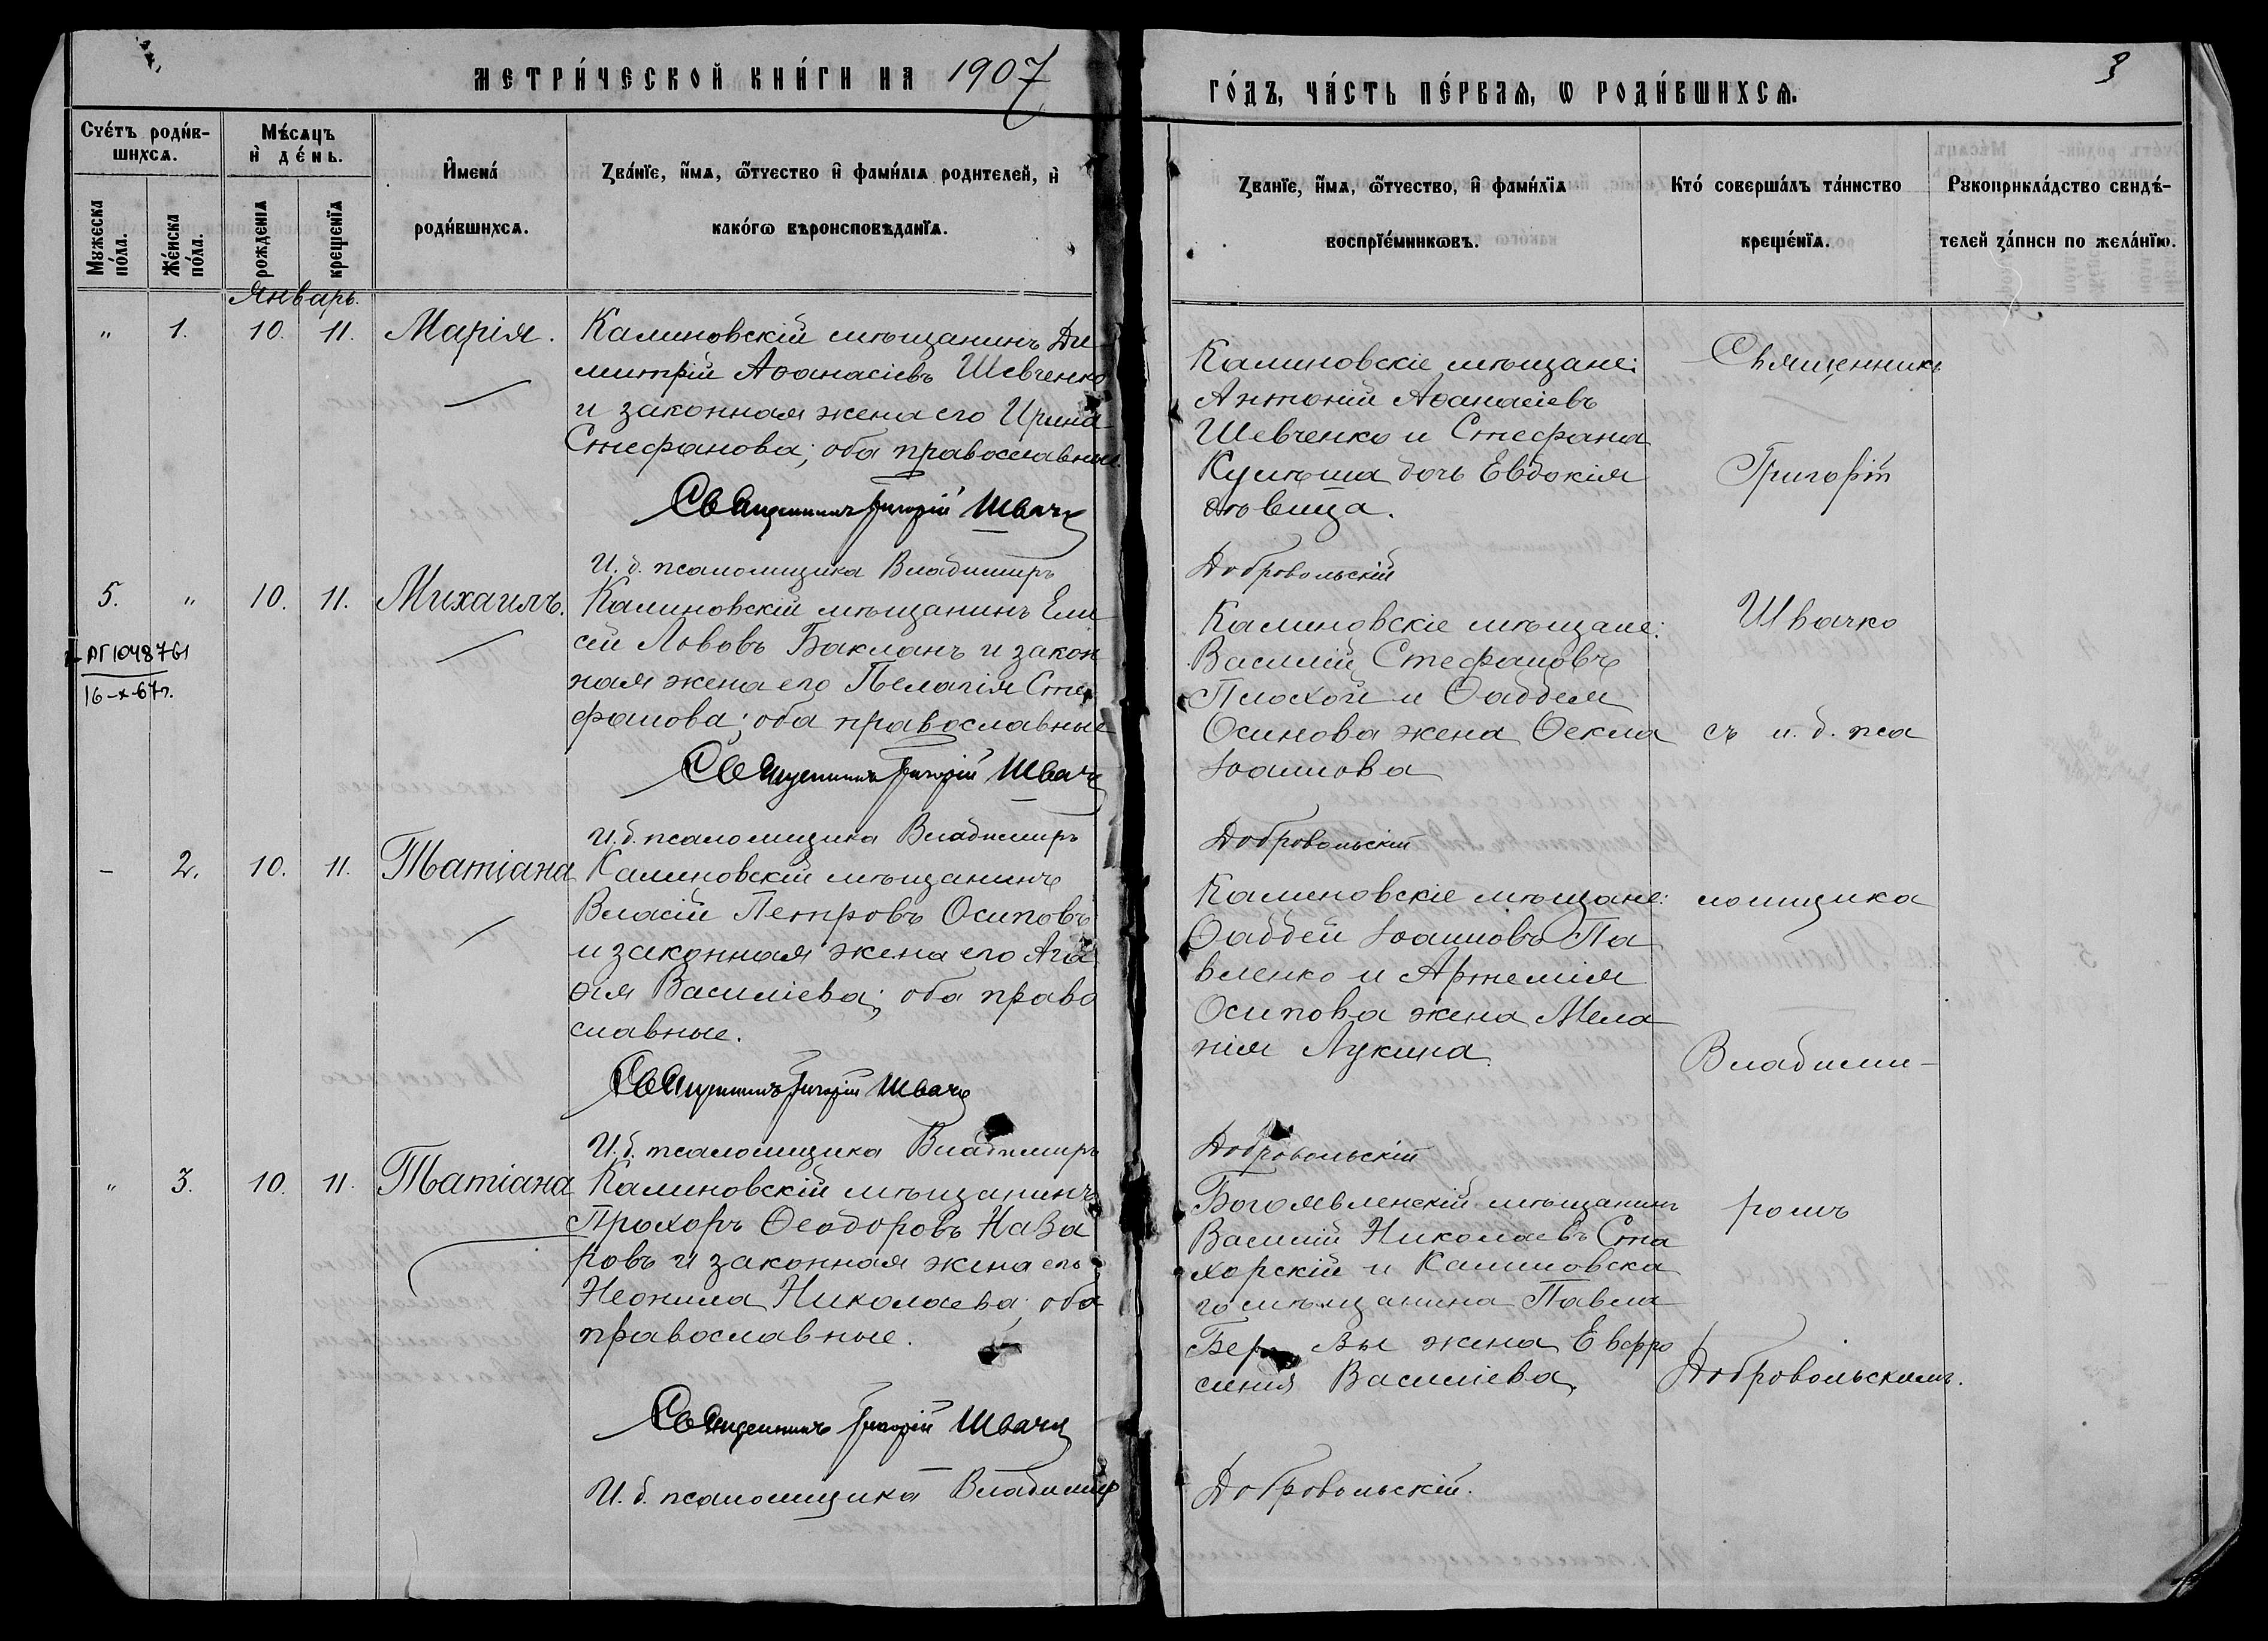 МЕТРИ́ЧЕСКОЙ КНИ́ГИ НА 1907
ГО́ДЪ, ЧА́СТЬ ПЕ́РВАѦ, Ѡ РОДИ́ВШИХСѦ.
3
Счéтъ роди́в-
шихсѧ.
Мужеска по́ла.
Же́нска по́ла.
Мѣ́сѧцъ
и҆ де́нь.
рожденїѧ
крещенїѧ
И҆мена́
роди́вшихсѧ.
Зва́нїе, и҆́мѧ, ѻ҆́тчество и҆ фами́лїѧ родителей, и҆
како́гѡ вѣроисповѣданїѧ.
Званїе, и҆́мѧ, ѻ҆́тчество, и҆ фами́лїѧ
воспрїе́мникѡвъ.
Кто́ соверша́лъ та́инство
креще́нїѧ.
Рукоприкла́дство свидѣ́-
телей за́писи по жела́нїю.
Январь.
" 1. 10. 11. Марія.
Калиновскій мѣщанинъ Ди
митрій Аѳанасіевъ Шевченко
и законная жена его Ирина
Стефанова; оба православные.
Священникъ Григорій Швачко
И. д. псаломщика Владимиръ
Калиновскіе мѣщане:
Антоній Аѳанасіевъ
Шевченко и Стефана
Кулѣша дочь Евдокія
дѣвица.
Добровольскій
Священникъ
Григорій
5. " 10. 11. Михаилъ.
АГ 1048761
16-х-67г.
Калиновскій мѣщанинъ Ели
сей Львовъ Бакланъ и закон
ная жена его Пелагія Сте
фанова; оба православные
Священникъ Григорій Швачко
И. д. псаломщика Владимиръ
Калиновскіе мѣщане:
Василій Стефановъ
Плохой и Ѳаддея
Осипова жена Ѳекла
Іоаннова
Добровольскій
Швачко
съ и. д. пса
- 2. 10. 11. Татіана
Калиновскій мѣщанинъ
Власій Петровъ Осиповъ
и законная жена его Ага
ѳія Василіева; оба право
славные.
Священникъ Григорій Швачко
И. д. псаломщика Владимиръ
Калиновскіе мѣщане:
Ѳаддей Іоанновъ Па
вленко и Артемія
Осипова жена Мела
нія Лукина.
Добровольскій
ломщика
Владими-
" 3. 10. 11. Татіана
Калиновскій мѣщанинъ
Прохоръ Ѳеодоровъ Наза
ровъ и законная жена его
Неонила Николаева; оба
православные.
Священникъ Григорій Швачко
И. д. псаломщика Владимир
Богоявленскій мѣщанинъ
Василій Николаевъ Ста
хорскій и Калиновска
го мѣщанина Павла
жена Евфро
синія Василіева.
Добровольскій.
ромъ
Добровольскимъ.